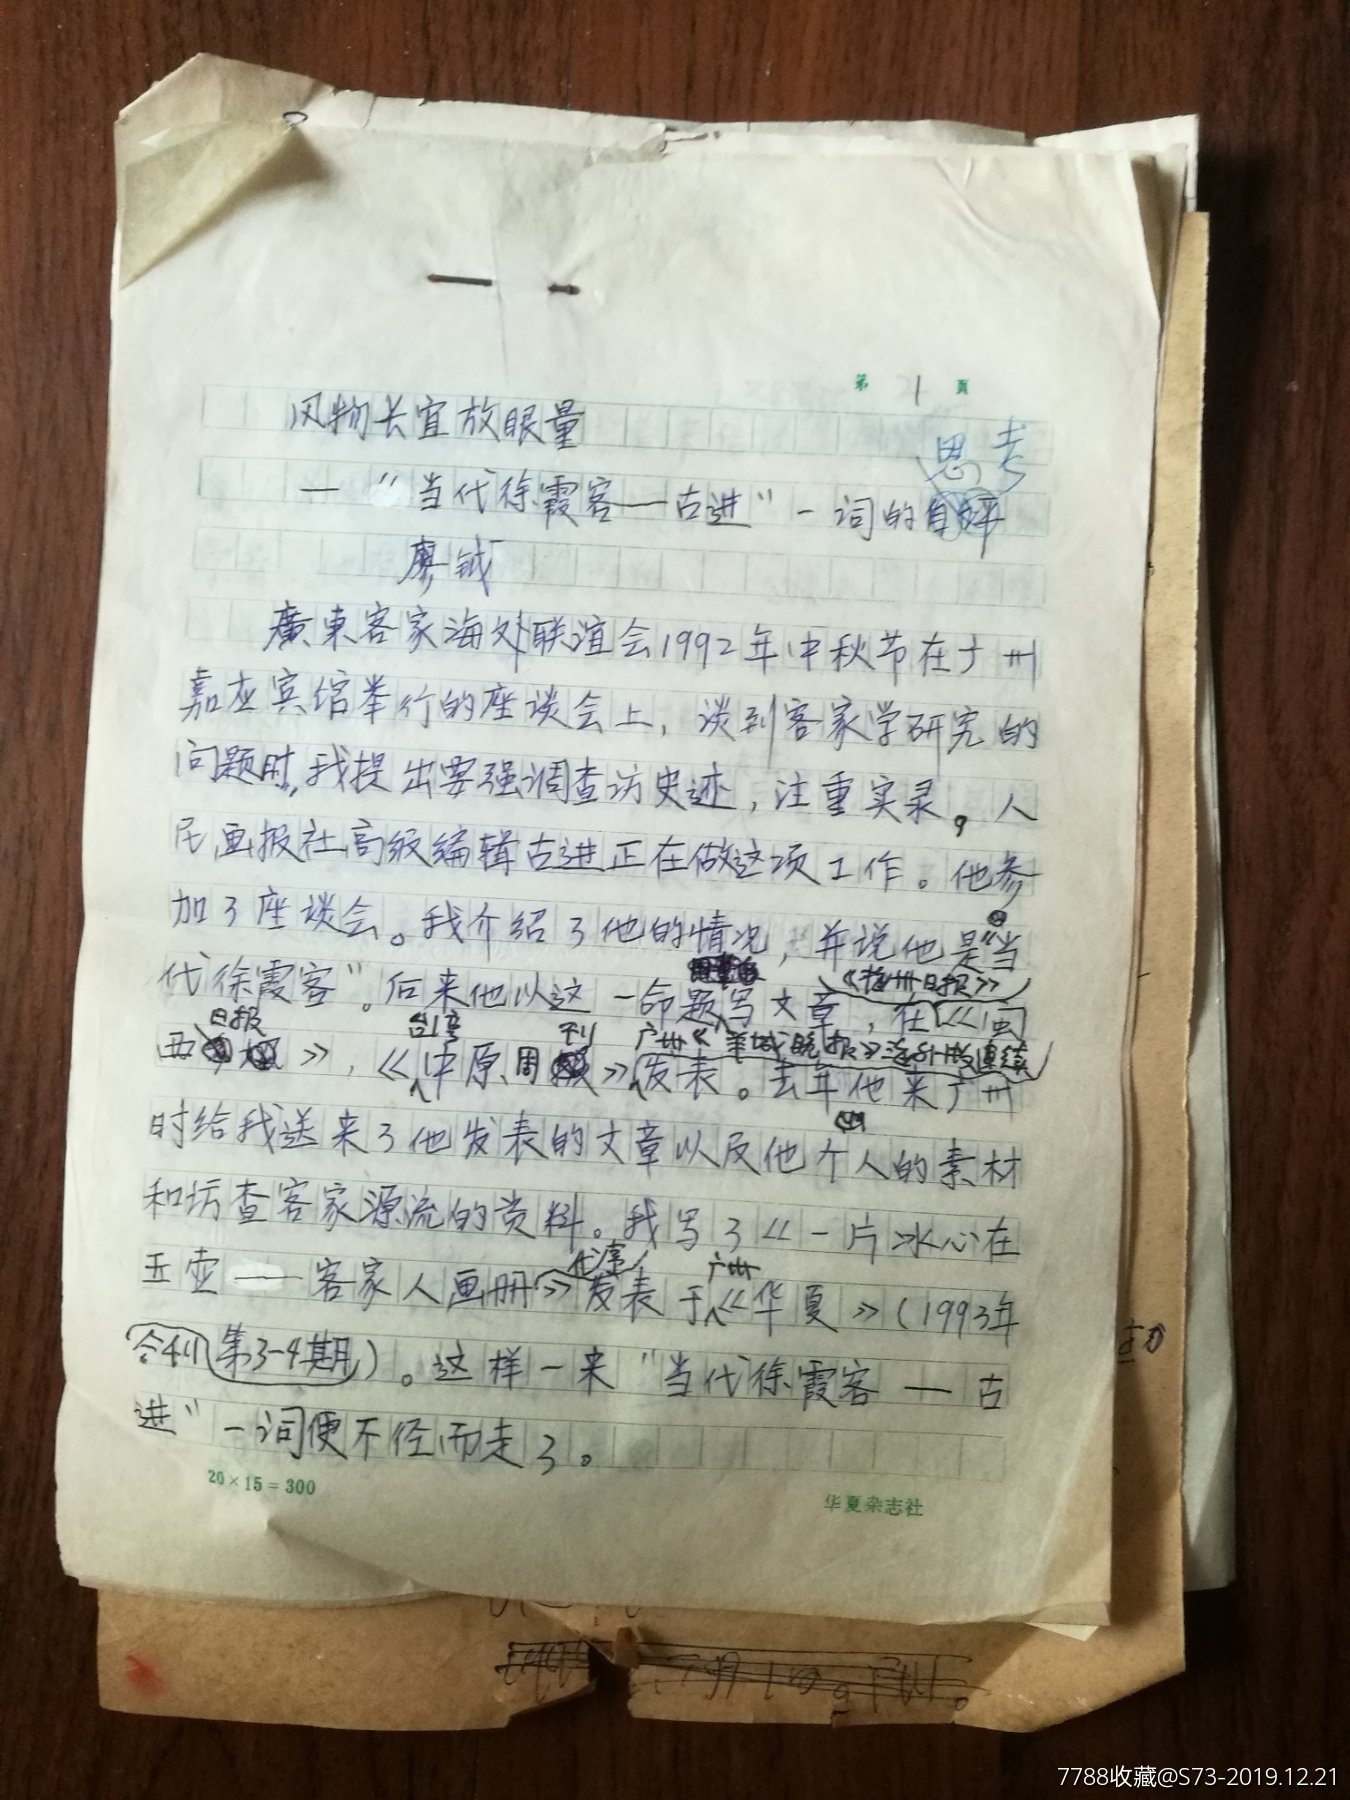 第 1 页
风物长宜放眼量
思考
—“当代徐霞客——古进”一词的自评
廖钺
廣東客家海外联谊会1992年中秋节在广州
嘉应宾馆举行的座谈会上，谈到客家学研究的
问题时，我提出要强调查访史迹，注重实录。人
民画报社高级编辑古进正在做这项工作。他参
加了座谈会。我介绍了他的情况，并说他是“当
代徐霞客”。后来他以这一命题写文章，在《闽
《梅州日报》
日报
台湾
刊
广州《羊城晚报》海外版连续
西》，《中原周》发表。去年他来广州
时给我送来了他发表的文章以及他个人的素材
和访查客家源流的资料。我写了《一片冰心在
玉壶——客家人画册》发表于《华夏》（1993年
代序
广州
合刊第3-4期）。这样一来“当代徐霞客—古
进”一词便不径而走了。
20×15=300
华夏杂志社
7788收藏@S73-2019.12.21